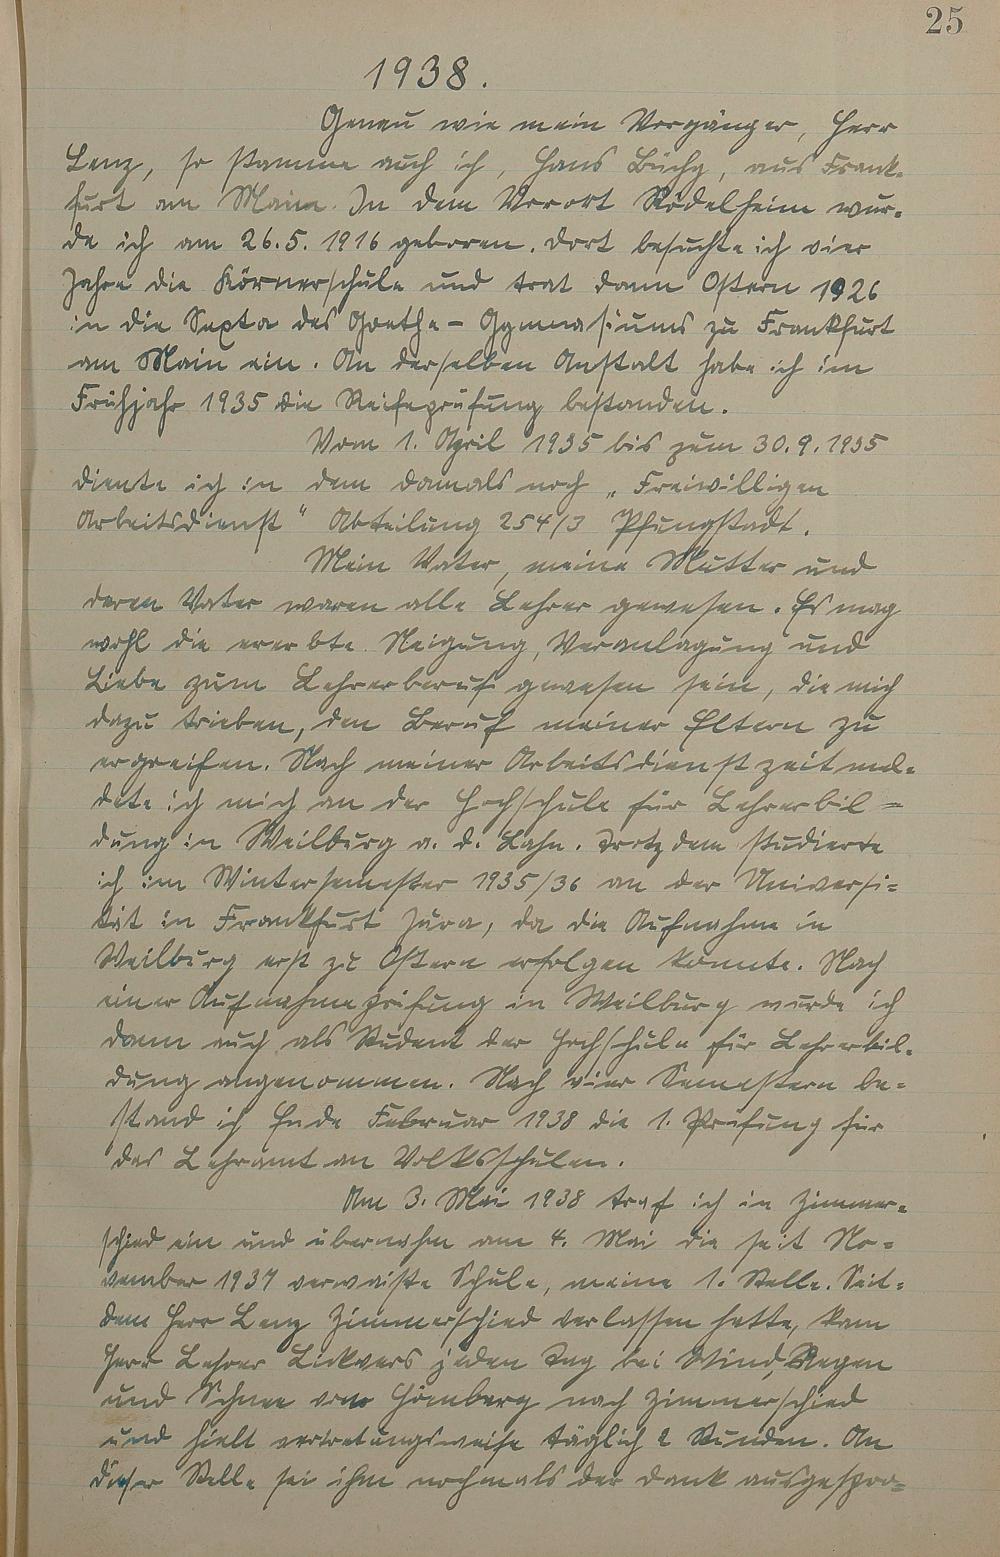 25
1938.
Genau wie mein Vorgänger, Herr
Lenz, so stamme auch ich, Hans Büchy, aus Frank-
furt am Main. In dem Vorort Rödelheim wur-
de ich am 26.5.1916 geboren. Dort besuchte ich vier
Jahre die Körnerschule und trat dann Ostern 1926
in die Sexta des Goethe-Gymnasiums zu Frankfurt
am Main ein. An derselben Anstalt habe ich im
Frühjahr 1935 die Reifeprüfung bestanden.
Vom 1. April 1935 bis zum 30.9.1935
diente ich in dem damals noch „Freiwilligen
Arbeitsdienst" Abteilung 254/3 Pfungstadt.
Mein Vater, meine Mutter und
deren Vater waren alle Lehrer gewesen. Es mag
wohl die ererbte Neigung, Veranlagung und
Liebe zum Lehrerberuf gewesen sein, die mich
dazu trieben, den Beruf meiner Eltern zu
ergreifen. Nach meiner Arbeitsdienstzeit mel-
dete ich mich an der Hochschule für Lehrerbil-
dung in Weilburg a. d. Lahn. Trotzdem studierte
ich im Wintersemester 1935/36 an der Universi-
tät in Frankfurt Jura, da die Aufnahme in
Weilburg erst zu Ostern erfolgen konnte. Nach
einer Aufnahmeprüfung in Weilburg wurde ich
dann auch als Student der Hochschule für Lehrerbil-
dung angenommen. Nach vier Semestern be-
stand ich Ende Februar 1938 die 1. Prüfung für
das Lehramt an Volksschulen.
Am 3. Mai 1938 traf ich in Zimmer-
schied ein und übernahm am 4. Mai die seit No-
vember 1937 verwaiste Schule, meine 1. Stelle. Seit-
dem Herr Lenz Zimmerschied verlassen hatte, kam
Herr Lehrer Lickvers jeden Tag bei Wind, Regen
und Schnee vom Hömberg nach Zimmerschied
und hielt vertretungsweise täglich 2 Stunden. An
dieser Stelle sei ihm nochmals der Dank ausgespro-